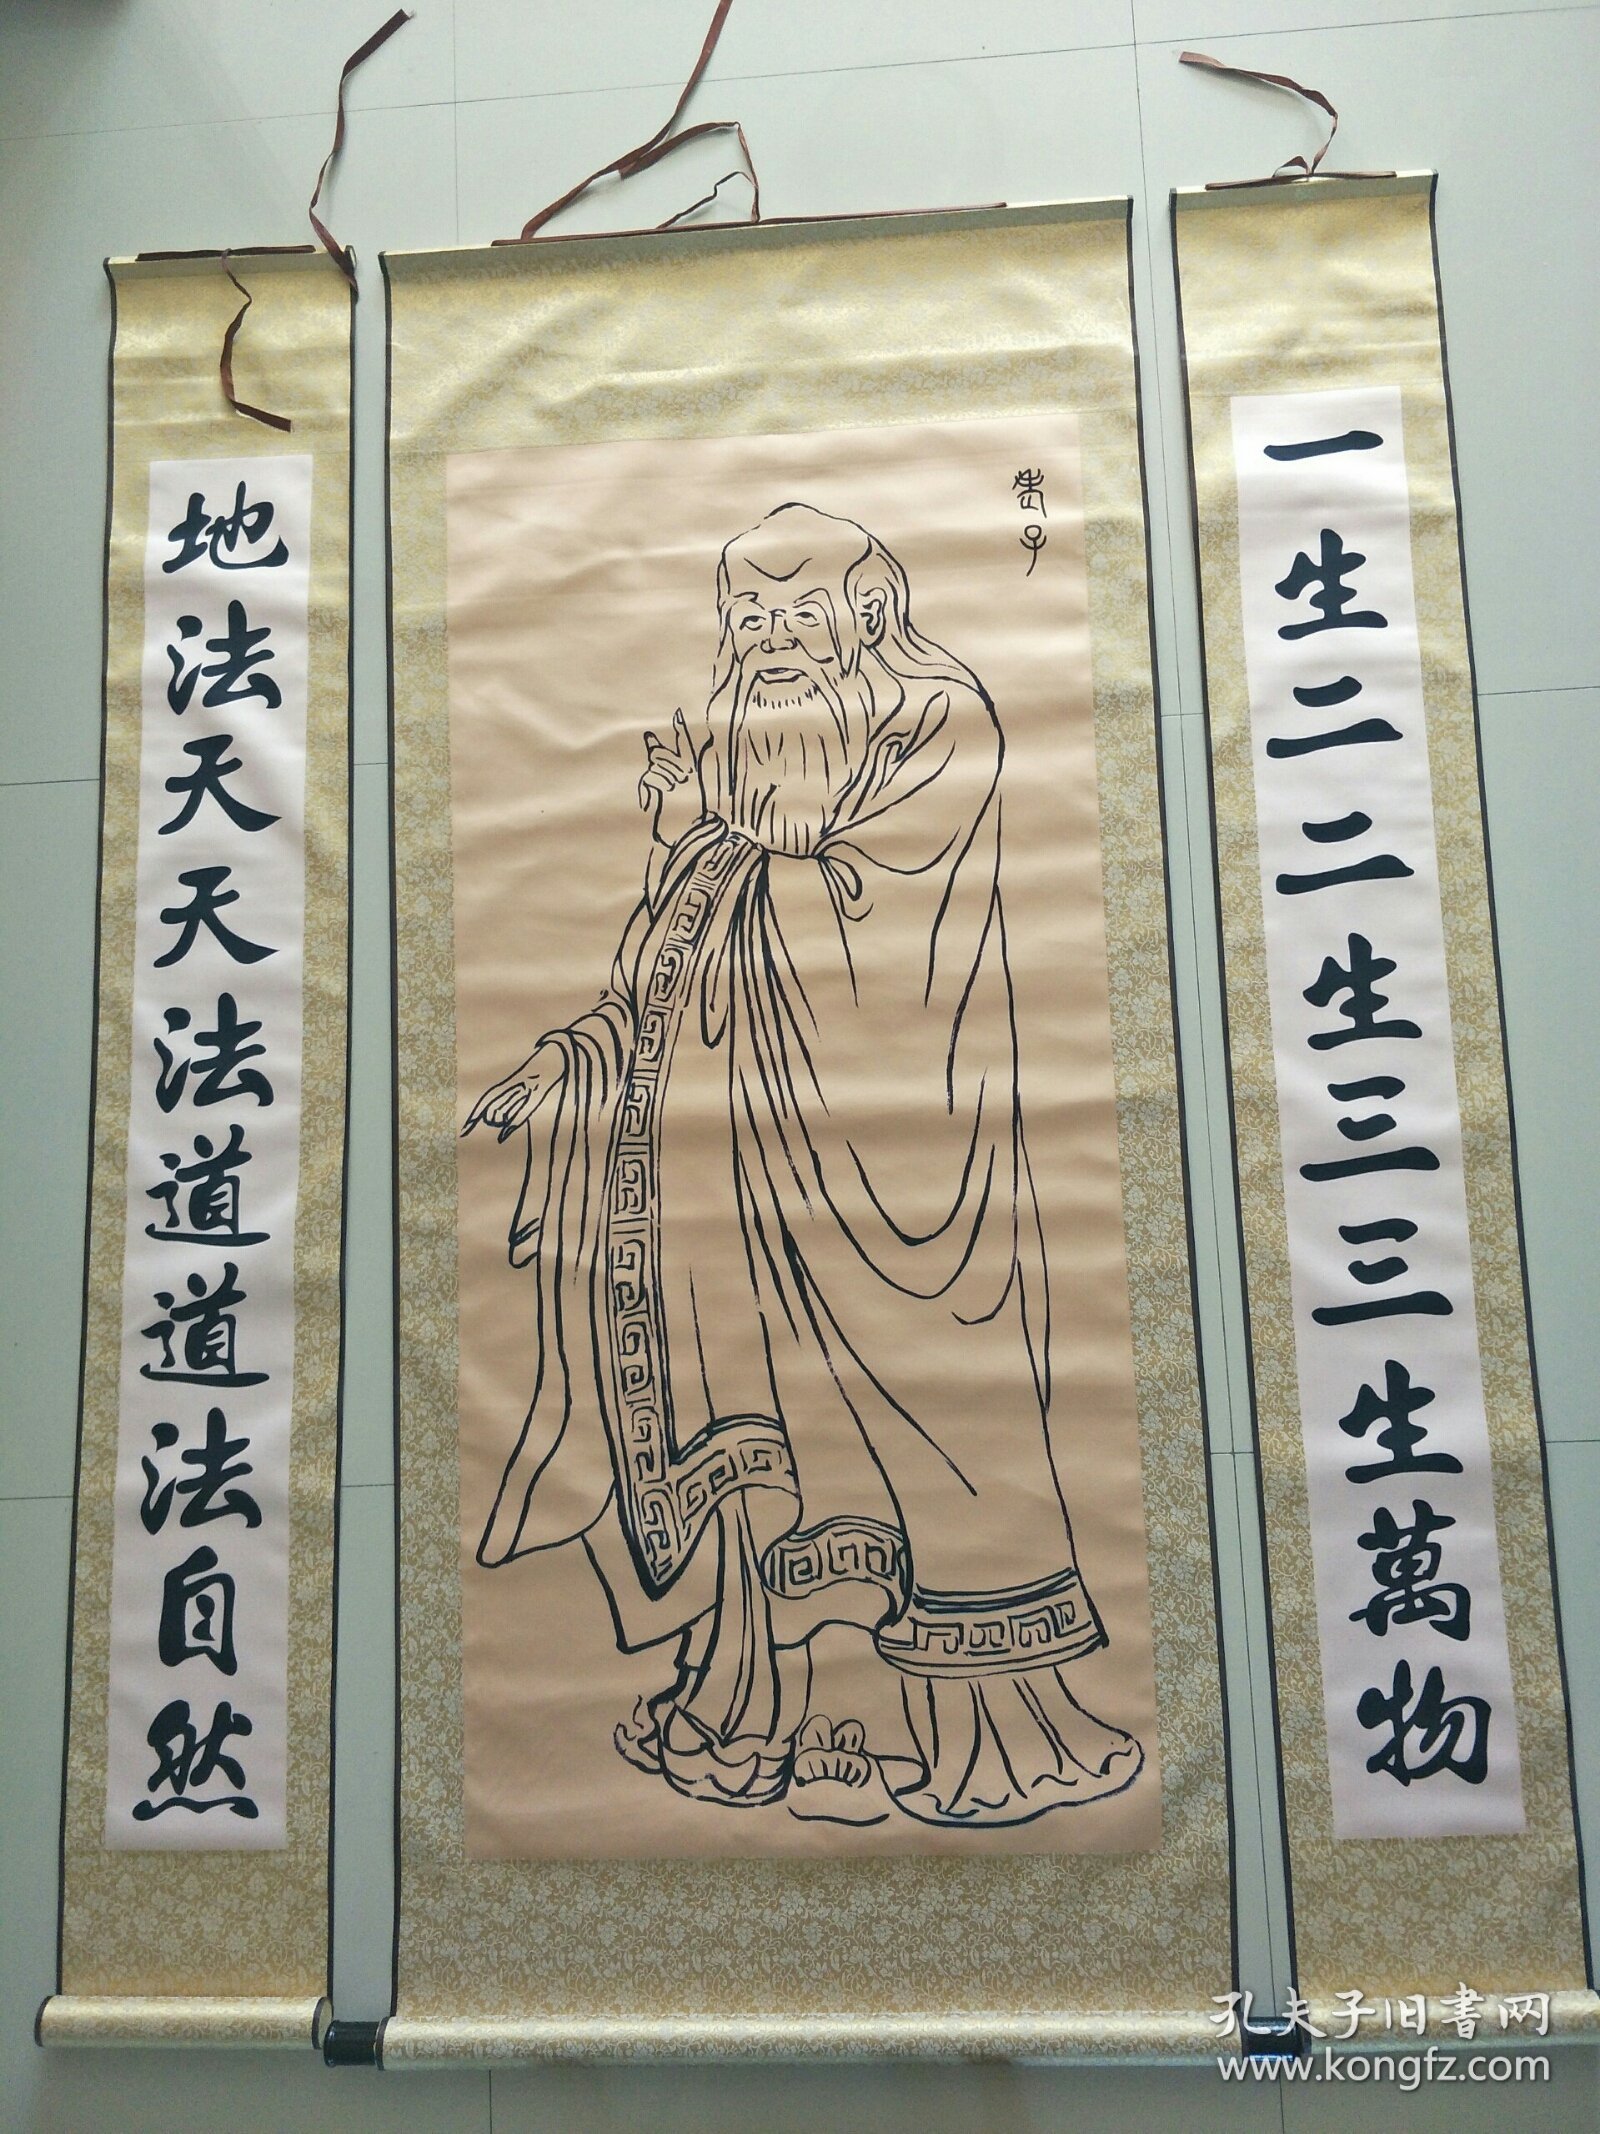 一生二二生三三生萬物
老子
地法天天法道道法自然
孔夫子旧書网
www.kongfz.com